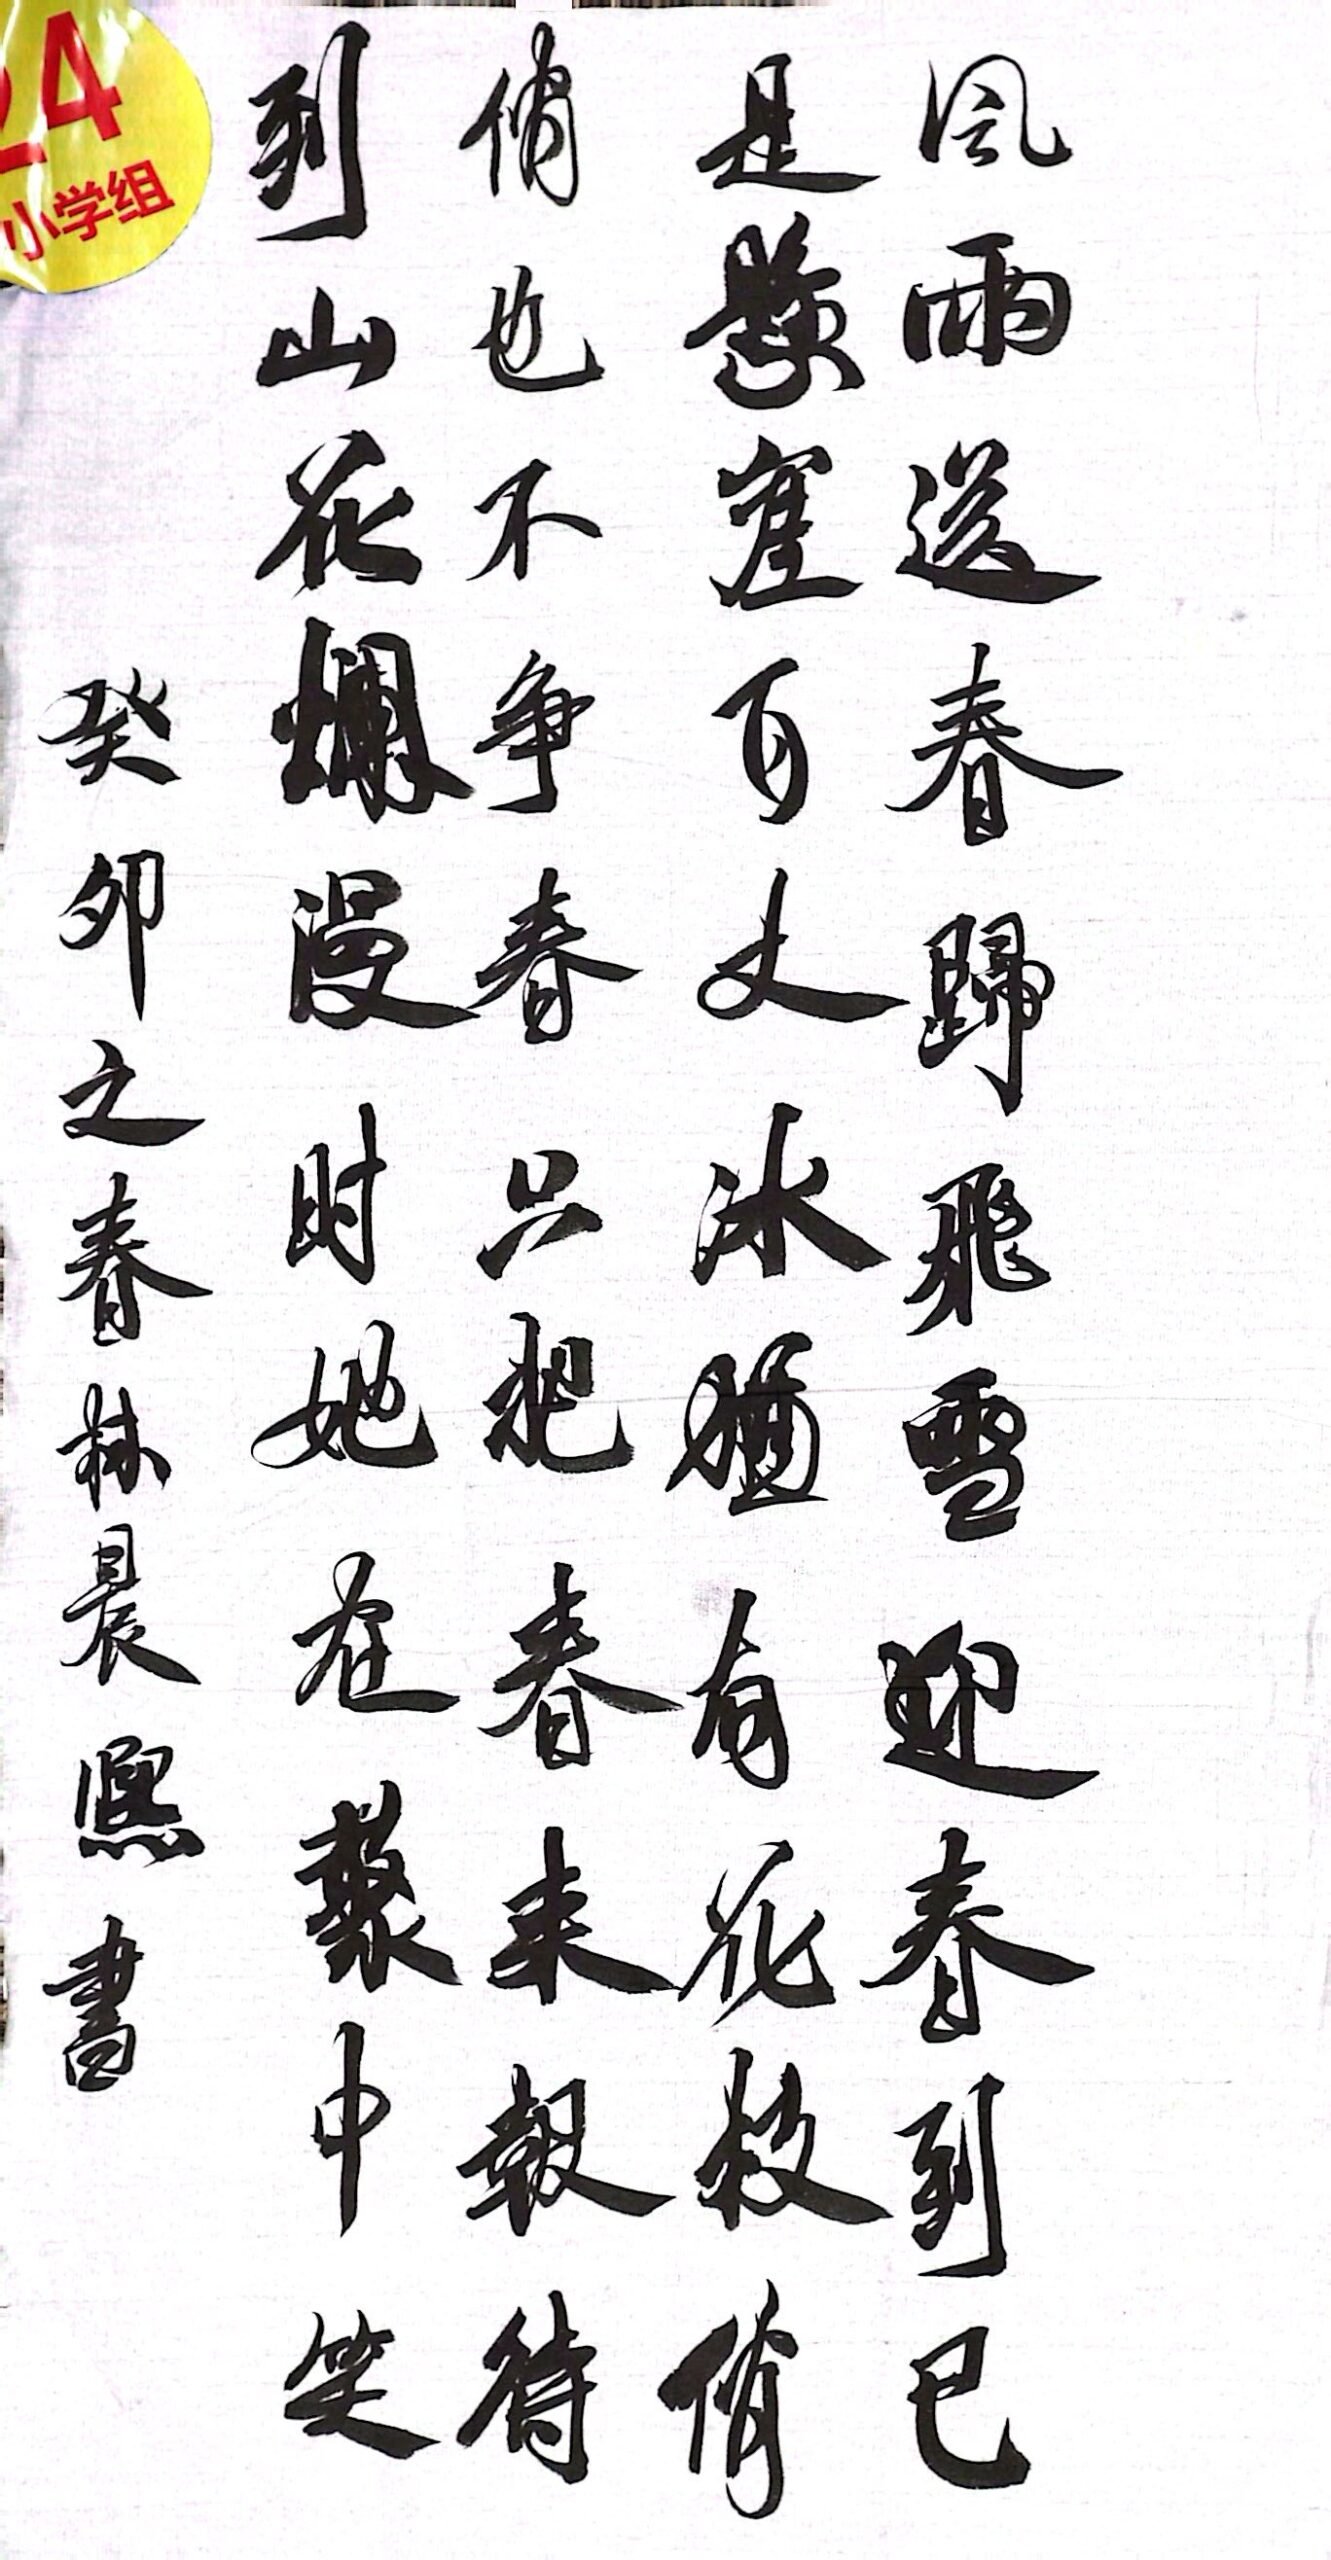 风雨送春歸飛雪迎春到已
是懸崖百丈冰猶有花枝俏
俏也不争春只把春来報待
到山花爛漫时她在叢中笑
癸卯之春林晨熙書
24
小学组